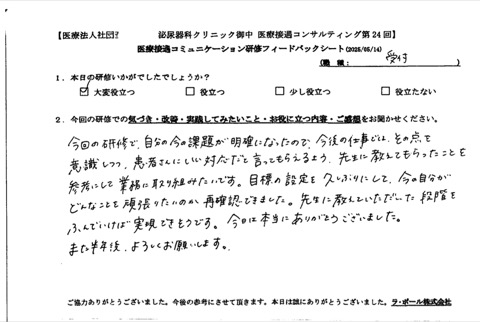 【医療法人社団 泌尿器科クリニック御中 医療接遇コンサルティング第24回】
医療接遇コミュニケーション研修フィードバックシート(2025/05/14)
(職 種: 受付 )
1.本日の研修いかがでしたでしょうか?
☑大変役立つ □役立つ □少し役立つ □役立たない
2.今回の研修での気づき・改善・実践してみたいこと・お役に立つ内容・ご感想をお聞かせください。
今回の研修で、自分の今の課題が明確になったので、今後の仕事でも、その点を
意識しつつ、患者さんにいい対応だと言ってもらえるよう、先生に教えてもらったことを
参考にして業務に取り組みたいです。目標の設定を久しぶりにして、今の自分が
どんなことを頑張りたいのか再確認できました。先生に教えていただいた段階を
ふんでいけば実現できそうです。今日は本当にありがとうございました。
また半年後、よろしくお願いします。
ご協力ありがとうございました。今後の参考にさせて頂きます。本日は誠にありがとうございました。ラ・ポール株式会社